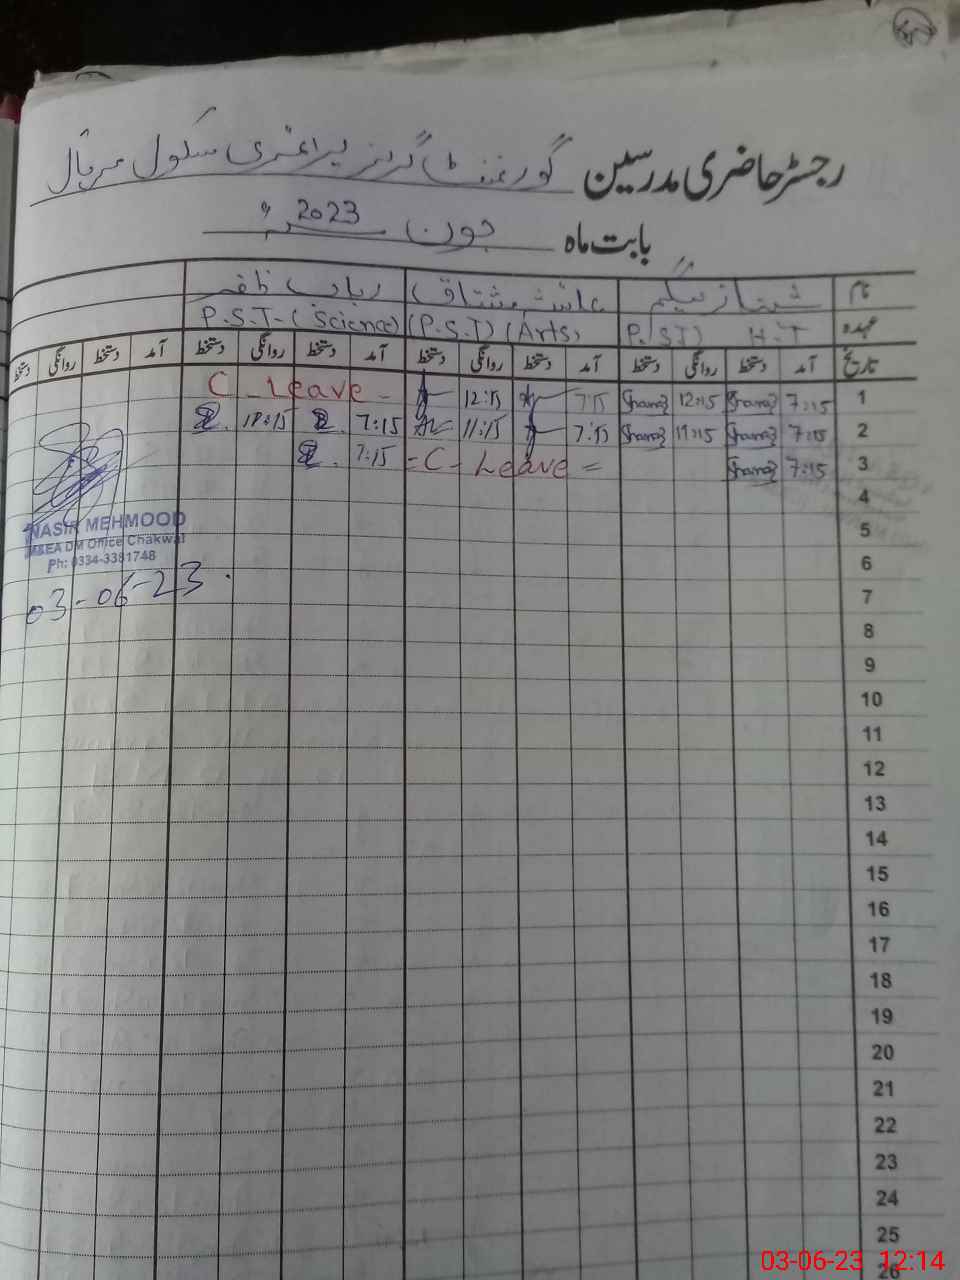 رجسٹر حاضری مدرسین گورنمنٹ گرلز پرائمری سکول مریال
بابت ماہ جون 2023ء
نام شہناز بیگم عائشہ مشتاق رباب ظفر
عہدہ P.S.T) H.T (P.S.T) (Arts) P.S.T-(Science)
تاریخ آمد دستخط روانگی دستخط آمد دستخط روانگی دستخط آمد دستخط روانگی دستخط آمد دستخط روانگی دستخط
1 7:15 Shanaz 12:15 Shanaz 7:15 12:15 C-Leave-
2 7:15 Shanaz 11:15 Shanaz 7:15 11:15 7:15 11:15
3 7:15 Shanaz =C-Leave= 7:15
4
5
6
7
8
9
10
11
12
13
14
15
16
17
18
19
20
21
22
23
24
25
26
NASIR MEHMOOD
M&EA DM Office Chakwal
Ph: 0334-3381748
03-06-23.
03-06-23 12:14